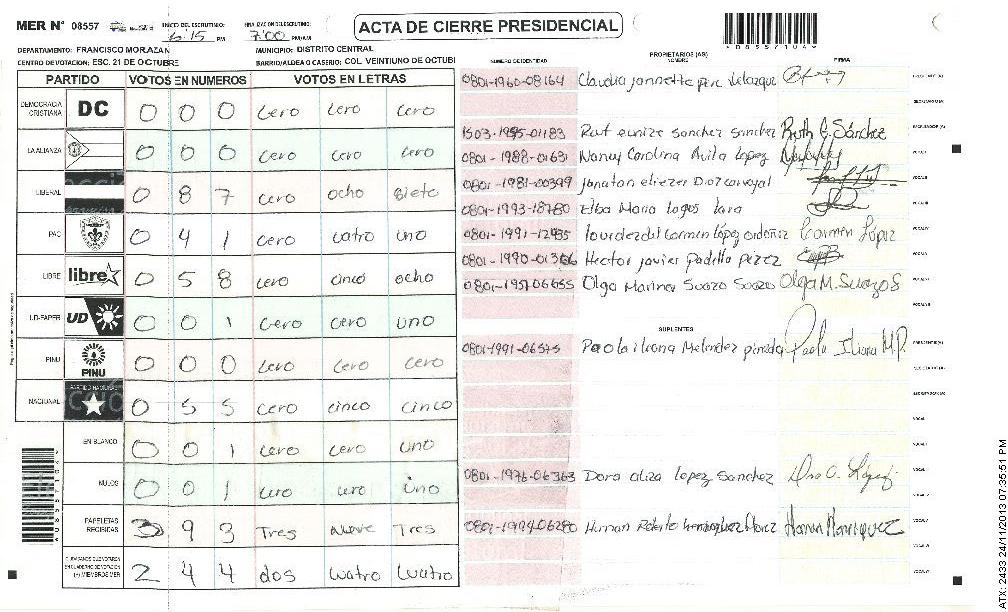 MER N° 08557 INICIO DEL ESCRUTINIO: 6:15 PM FINALIZACION DEL ESCRUTINIO: 7:00 PM/AM ACTA DE CIERRE PRESIDENCIAL
DEPARTAMENTO: FRANCISCO MORAZAN MUNICIPIO: DISTRITO CENTRAL
CENTRO DE VOTACION: ESC. 21 DE OCTUBRE BARRIO/ALDEA O CASERIO: COL. VEINTIUNO DE OCTUBI
PARTIDO VOTOS EN NUMEROS VOTOS EN LETRAS
DEMOCRACIA CRISTIANA DC 0 0 0 cero cero cero
LA ALIANZA 0 0 0 cero cero cero
LIBERAL 0 8 7 cero ocho siete
PAC 0 4 1 cero cuatro uno
LIBRE libre 0 5 8 cero cinco ocho
UD-FAPER UD 0 0 1 cero cero uno
PINU PINU 0 0 0 cero cero cero
NACIONAL 0 5 5 cero cinco cinco
EN BLANCO 0 0 1 cero cero uno
NULOS 0 0 1 cero cero uno
PAPELETAS RECIBIDAS 3 9 3 Tres nueve Tres
CIUDADANOS QUE VOTARON EN CUADERNO DE VOTACION (+) MIEMBROS MER 2 4 4 dos cuatro cuatro
NUMERO DE IDENTIDAD PROPIETARIOS (AS) NOMBRE FIRMA
0801-1960-08164 Claudia Jannette
1503-1995-01183 Rut eunize sanchez sanchez Ruth E. Sánchez
0801-1988-01631 Nancy Carolina Avila Lopez
0801-1981-00399 Jonatan eliezer Diaz
0801-1993-18780 Elba Maria Lagos Lara
0801-1991-12935 lourdes del Carmen López ordoñez Carmen López
0801-1990-01366 Hector javier Padilla Perez
0801-1957-06655 Olga Marina Suazo Suazo Olga M. Suazo S
SUPLENTES
0801-1991-06575 Paola iliana Melendez pineda Paola Iliana M.P.
0801-1976-06363 Dora aliza lopez Sanchez
Hernan Roberto
08557104
ATX: 2433 24/11/2013 07:35:51 PM